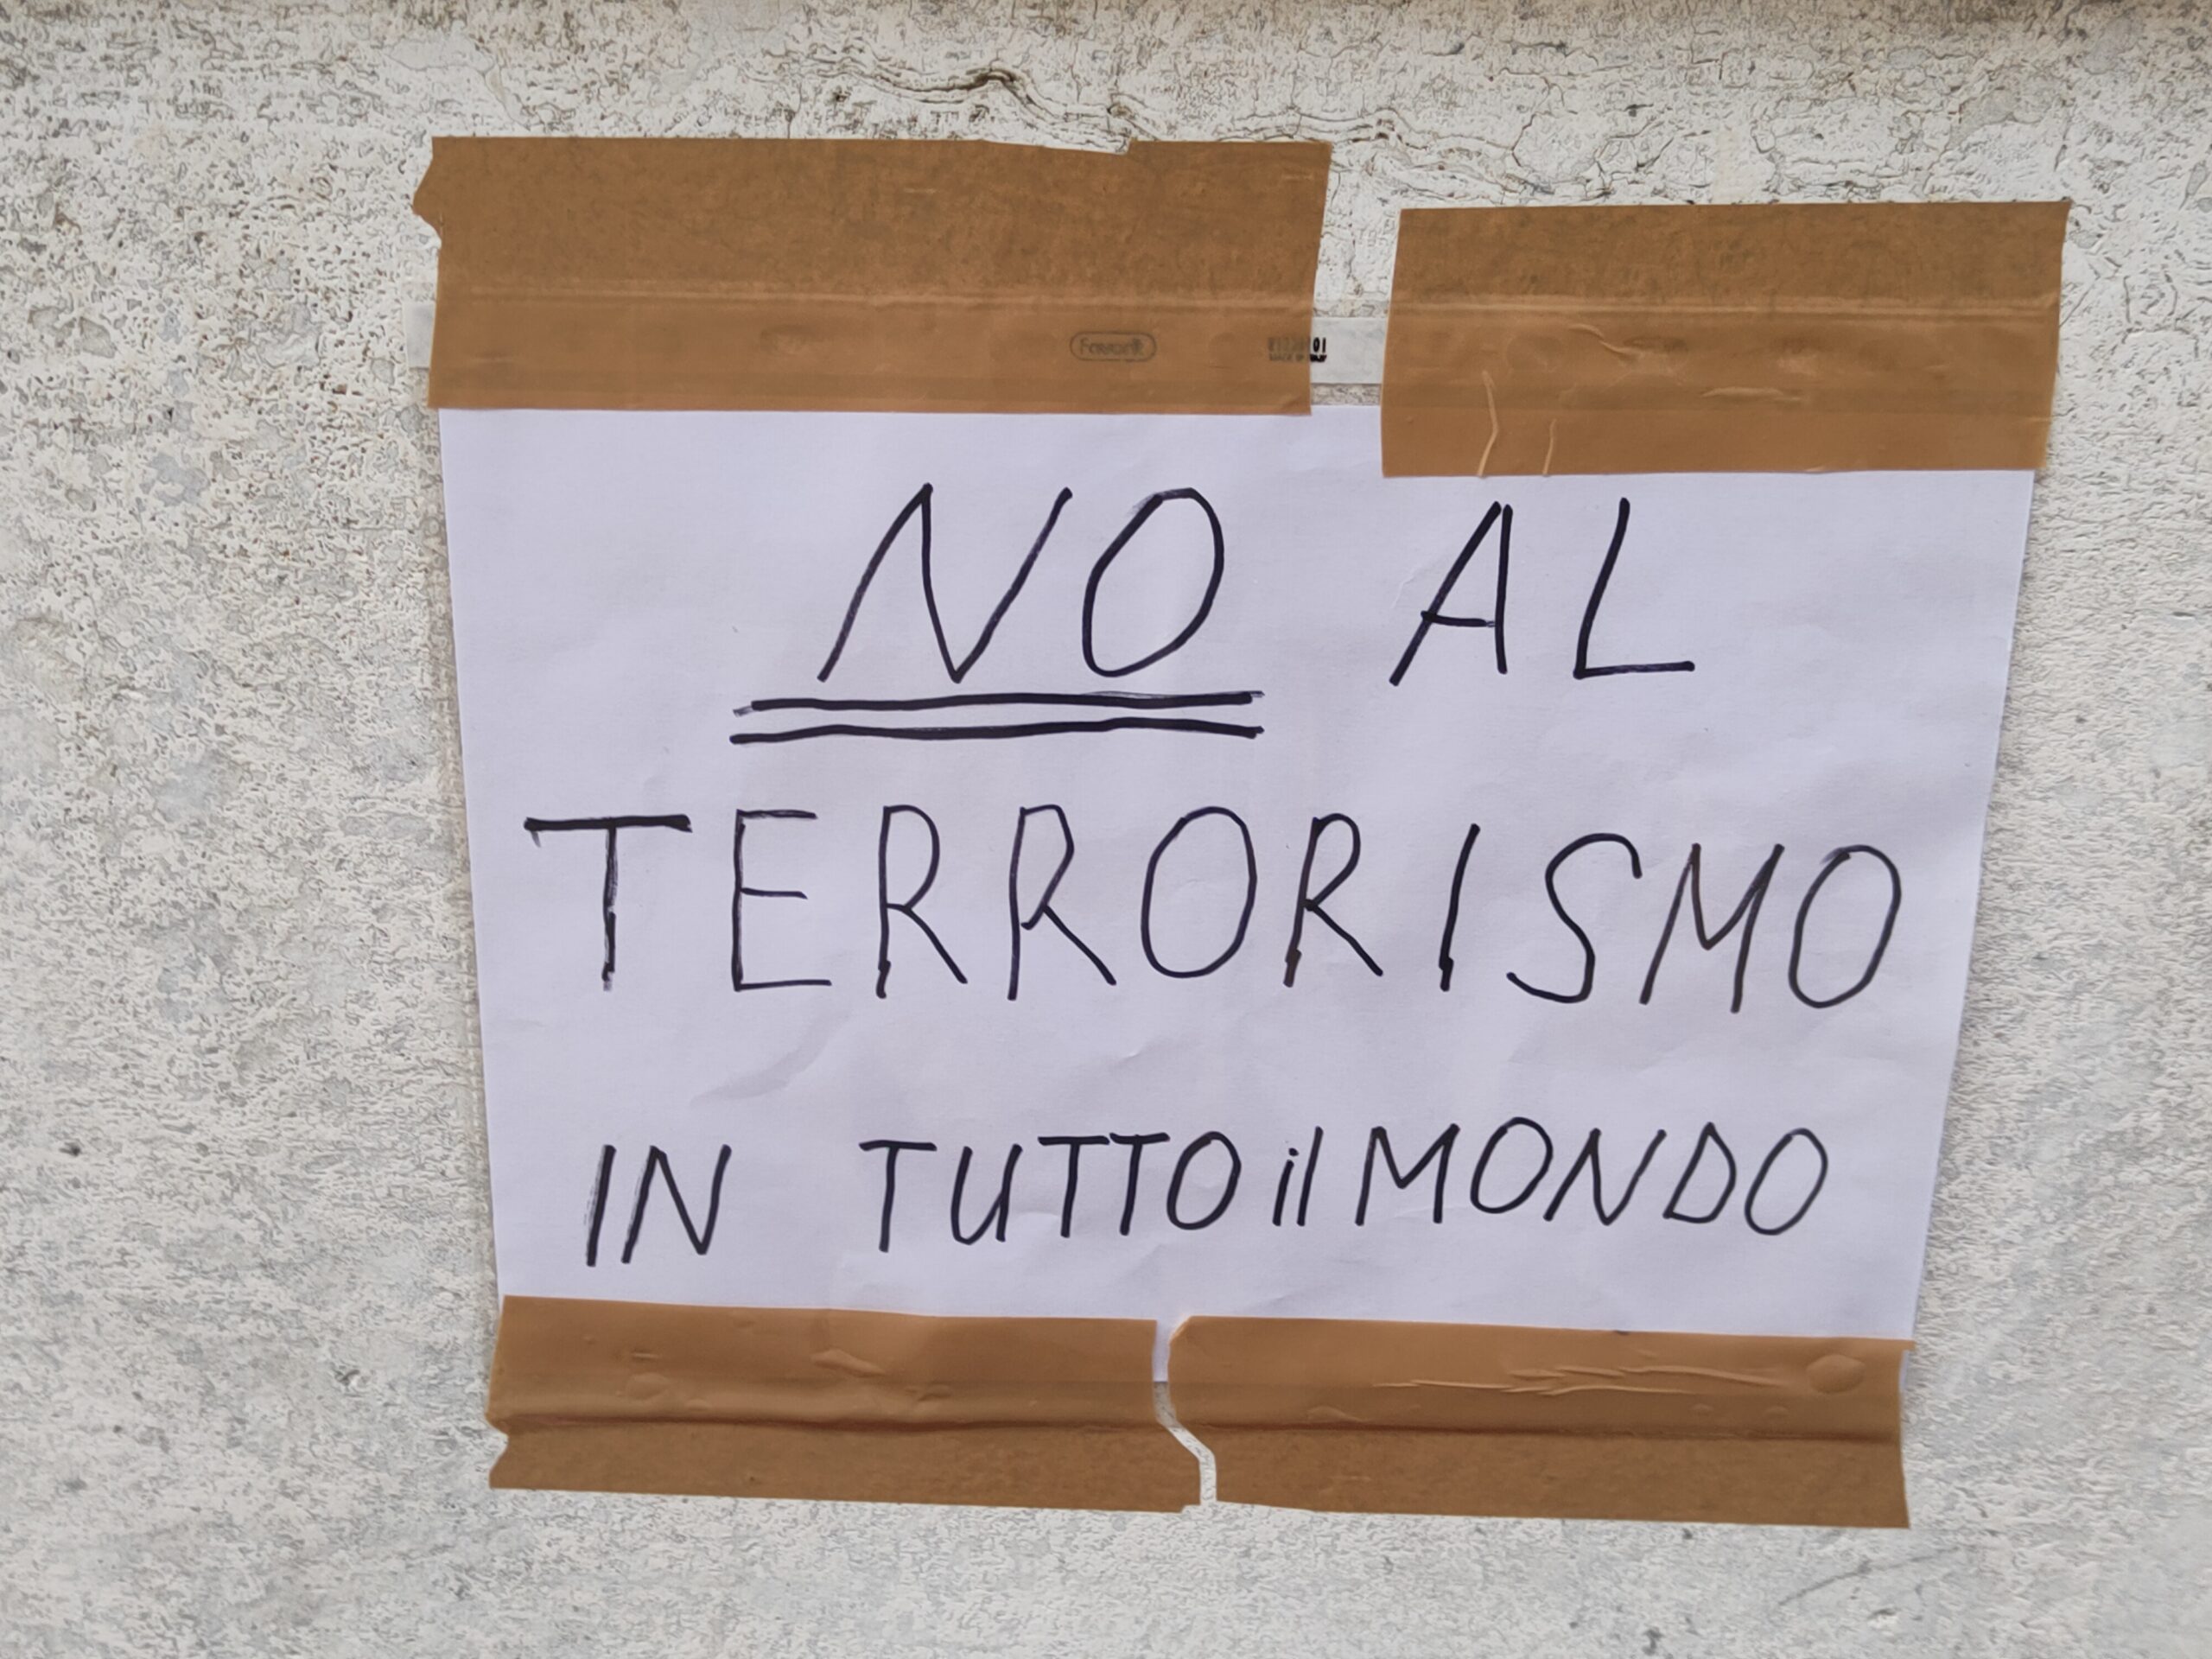 NO AL
TERRORISMO
IN TUTTO il MONDO